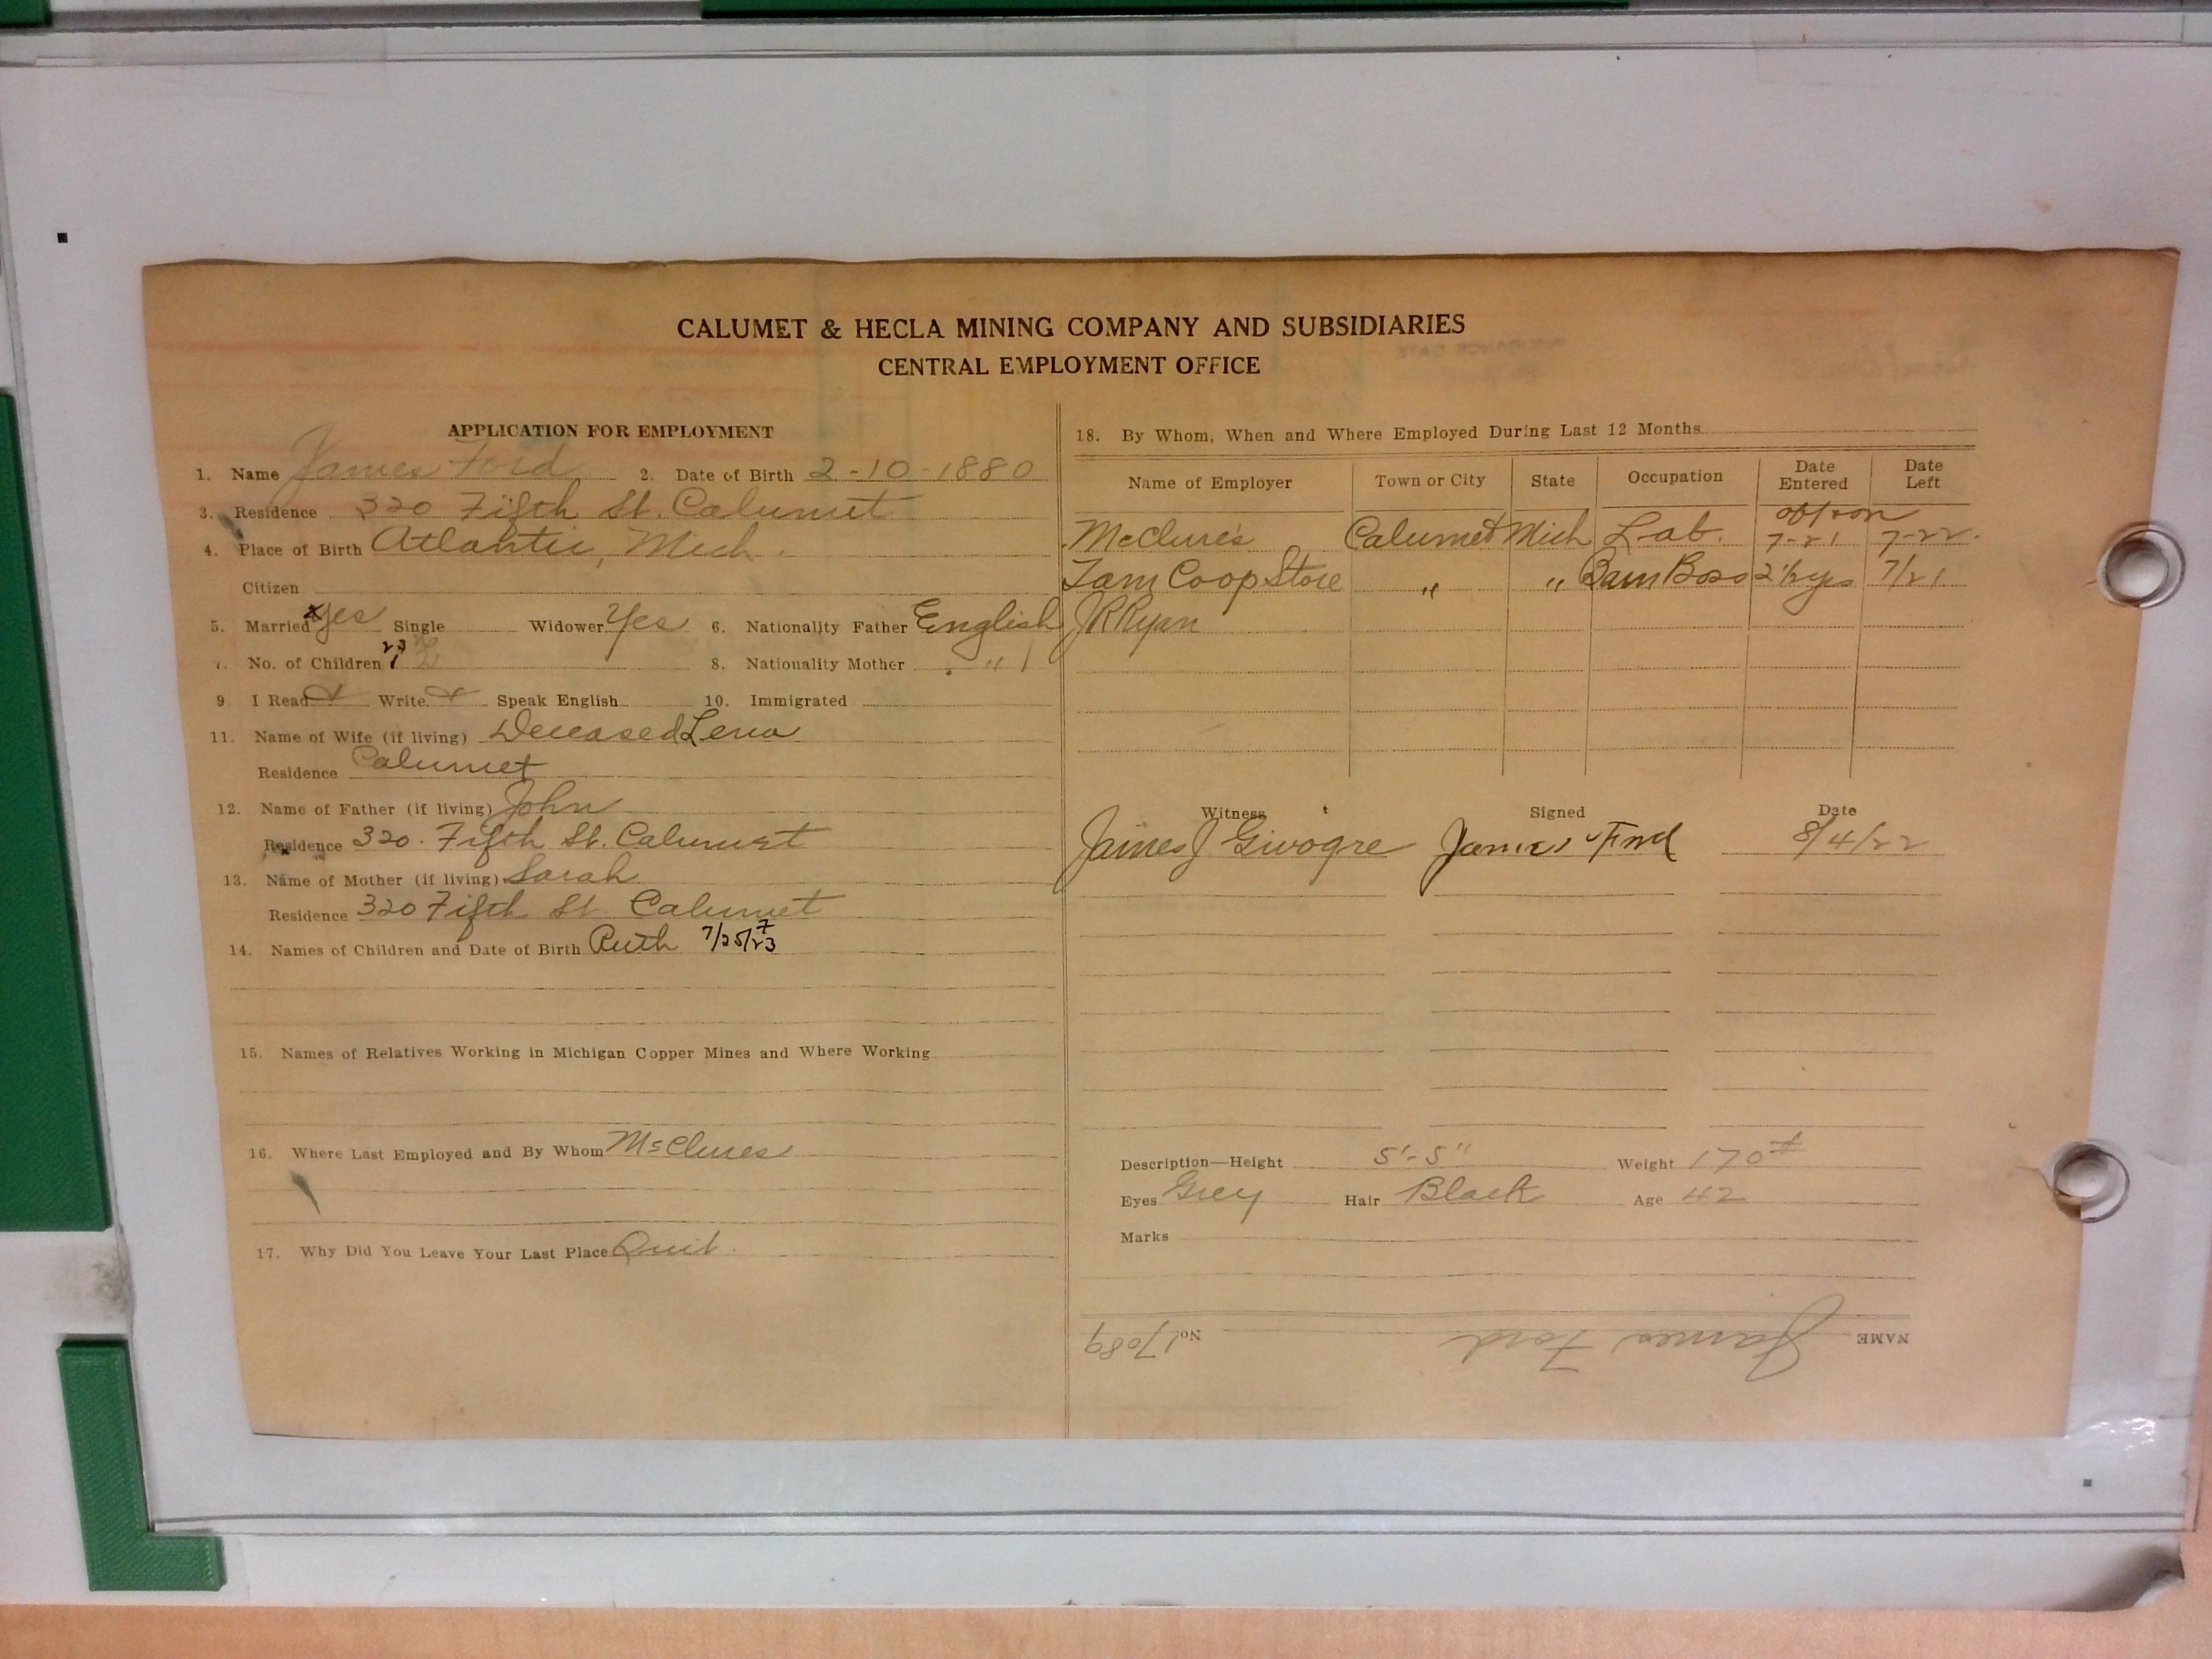 CALUMET & HECLA MINING COMPANY AND SUBSIDIARIES
CENTRAL EMPLOYMENT OFFICE
APPLICATION FOR EMPLOYMENT
1. Name James Ford 2. Date of Birth 2-10-1880
3. Residence 320 Fifth St. Calumet
4. Place of Birth Atlantic, Mich.
Citizen
5. Married yes Single Widower Yes 6. Nationality Father English
7. No. of Children 8. Nationality Mother "
9. I Read Write Speak English 10. Immigrated
11. Name of Wife (if living) Deceased Lena
Residence Calumet
12. Name of Father (if living) John
Residence 320. Fifth St. Calumet
13. Name of Mother (if living) Sarah
Residence 320 Fifth St. Calumet
14. Names of Children and Date of Birth Ruth 7/25/23
15. Names of Relatives Working in Michigan Copper Mines and Where Working
16. Where Last Employed and By Whom McClures
17. Why Did You Leave Your Last Place Quit.
18. By Whom, When and Where Employed During Last 12 Months
Name of Employer Town or City State Occupation Date Entered Date Left
McClure's Calumet Mich Lab. off & on 7-21 7-22.
Tam Coop Store " " Barn Boss 2 1/2 yrs 7/21
J R Ryan
Witness Signed Date
James J James Ford 8/4/22
Description—Height 5'-5" Weight 170#
Eyes Grey Hair Black Age 42
Marks
NAME James Ford No. 17089